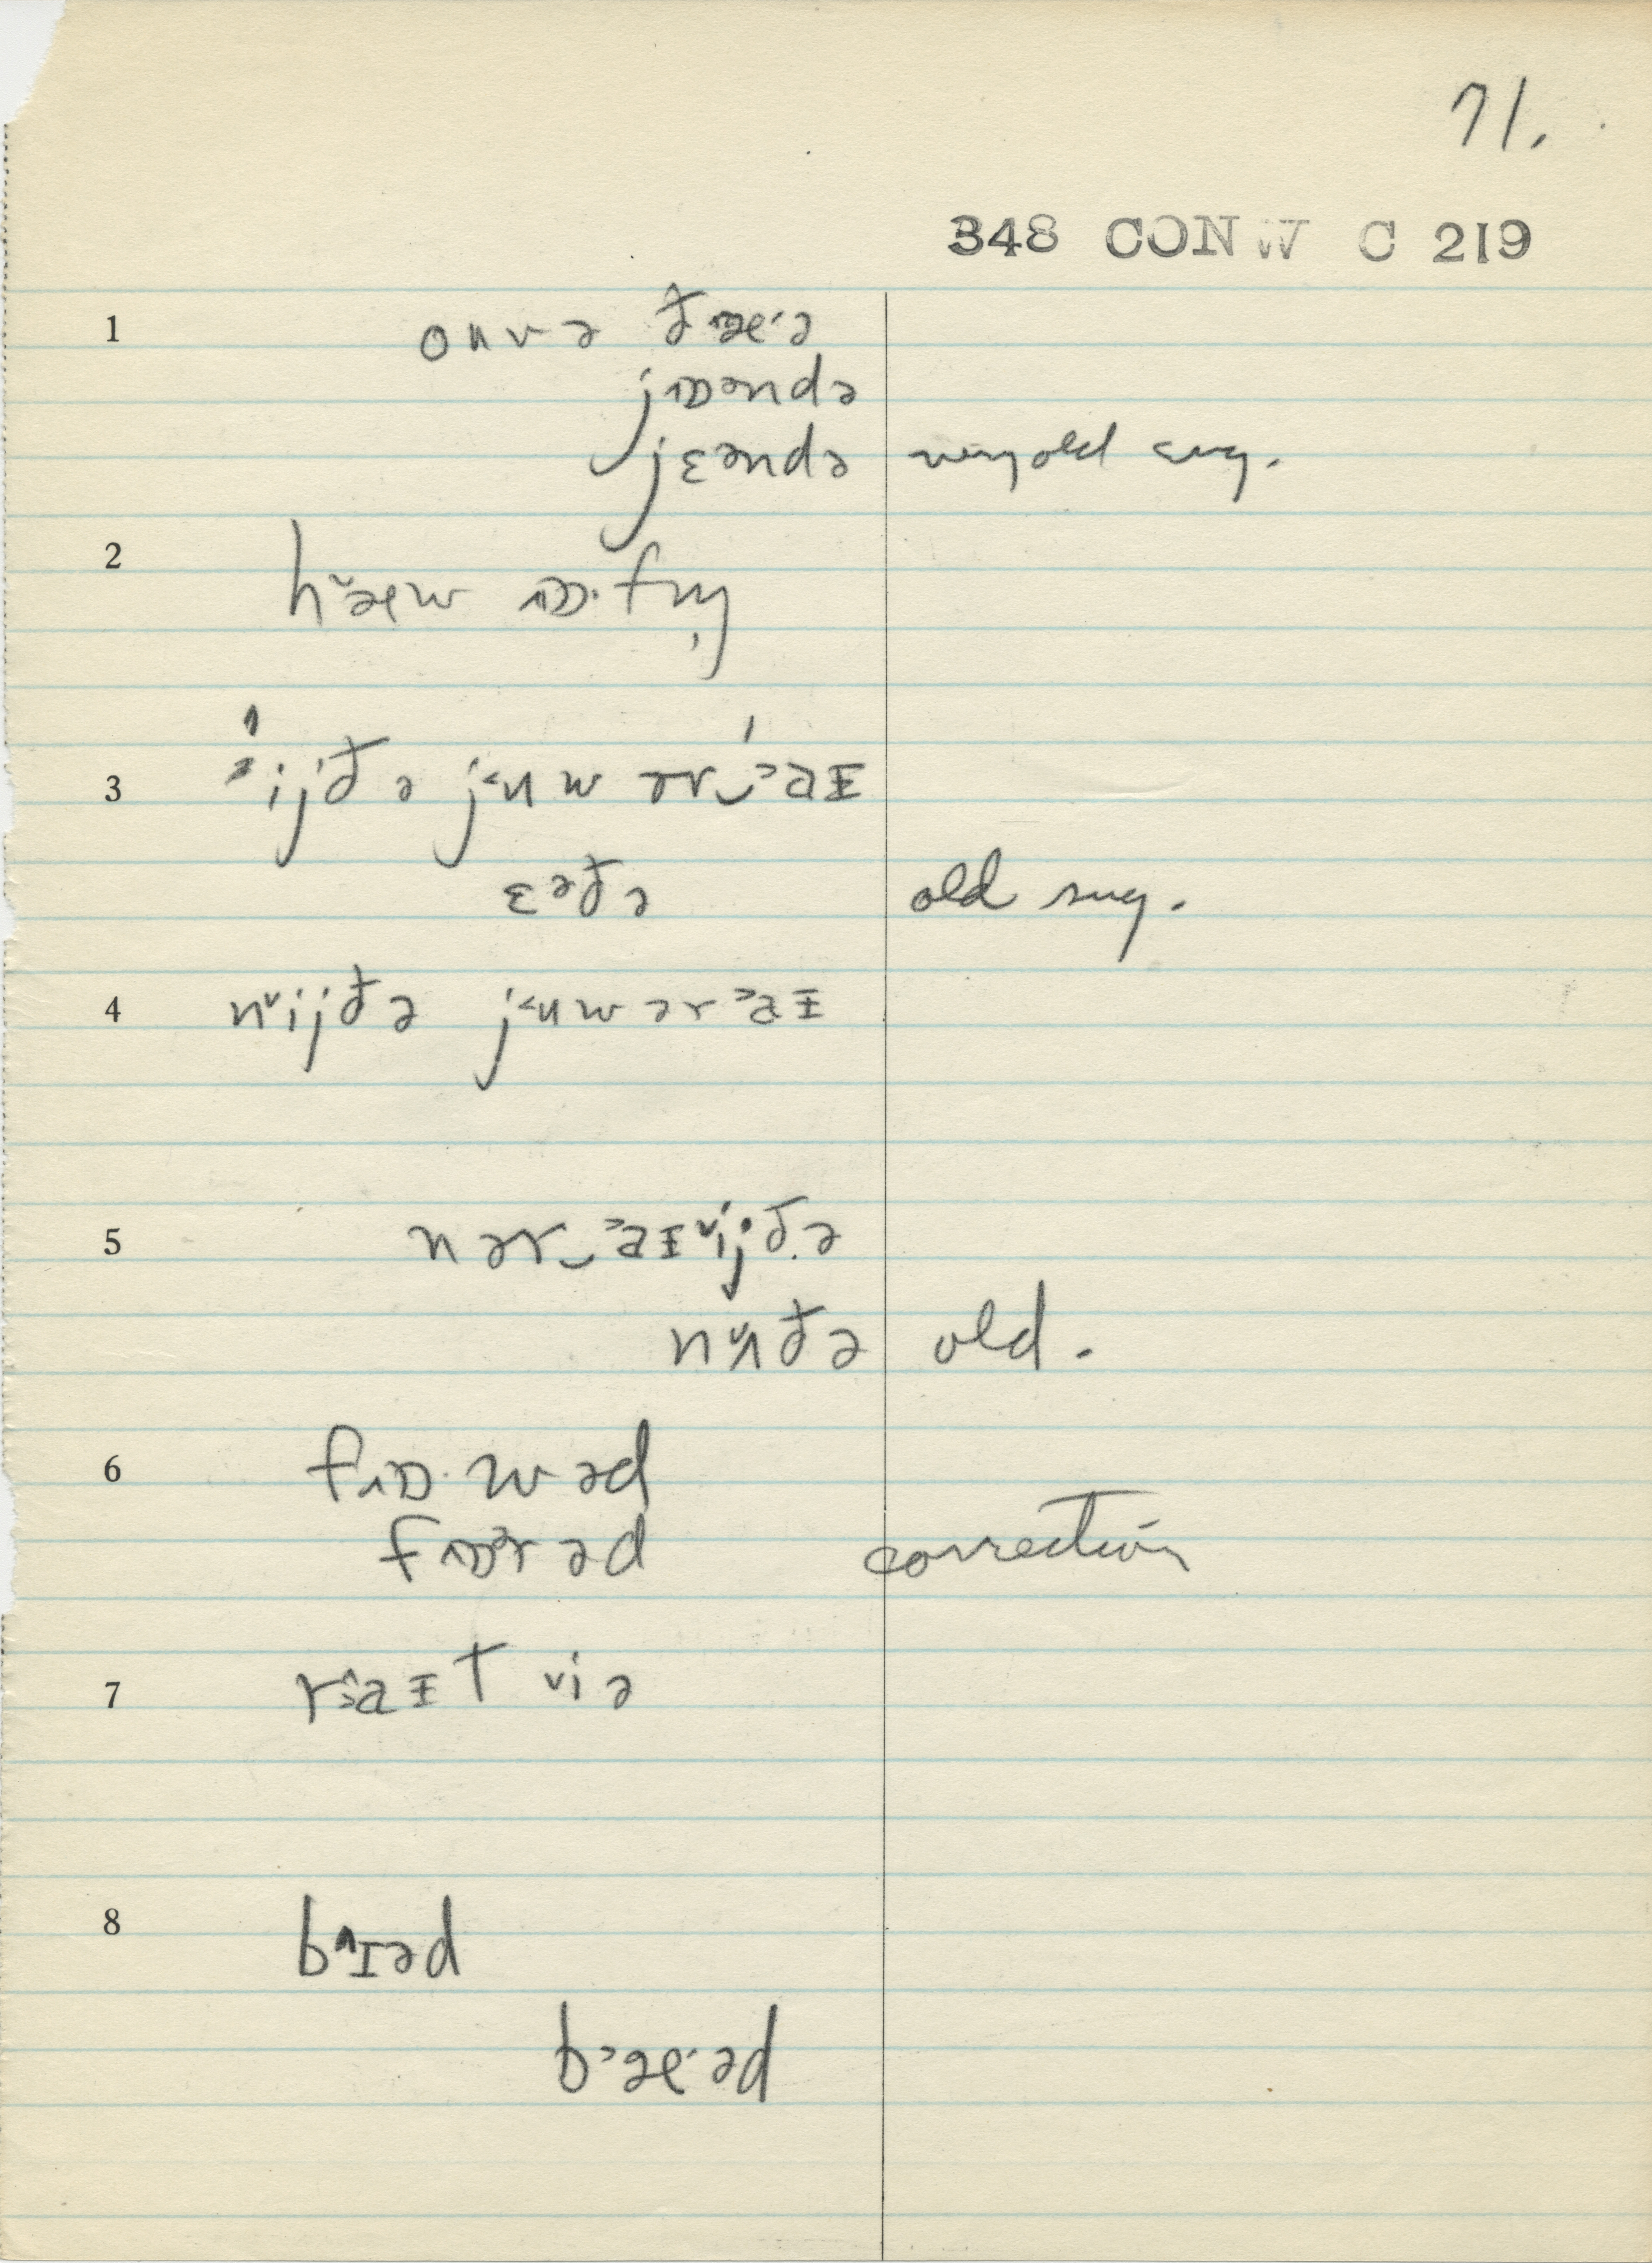 71.
348 CONW C 219
1 onvə ðæ·ə
jɒəndə
jɛəndə very old sug.
2 hæw ɒ·fn̩
3 ijðə jʉw ər‿aɪ
ɛəðə old sug.
4 nijðə jʉw ər aɪ
5 nər‿aɪijðə
nʌðə old.
6 fɒ·wəd
fɒərəd correction
7 raɪt iə
8 bɪəd
bæ·əd